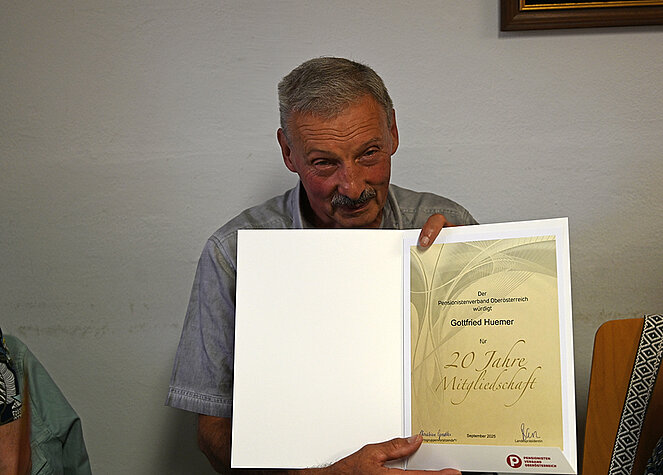 Der
Pensionistenverband Oberösterreich
würdigt
Gottfried Huemer
für
20 Jahre
Mitgliedschaft
September 2025
Landespräsidentin
PENSIONISTEN
VERBAND
OBERÖSTERREICH